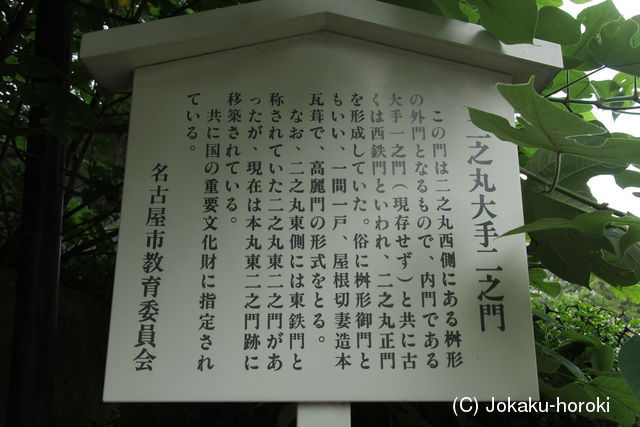 二之丸大手二之門
この門は二之丸西側にある桝形
の外門となるもので、内門である
大手一之門（現存せず）と共に古
くは西鉄門といわれ、二之丸正門
を形成していた。俗に桝形御門と
もいい、一間一戸、屋根切妻造本
瓦葺で、高麗門の形式をとる。
なお、二之丸東側には東鉄門と
称されていた二之丸東二之門があ
ったが、現在は本丸東二之門跡に
移築されている。
共に国の重要文化財に指定され
ている。
名古屋市教育委員会
(C) Jokaku-horoki